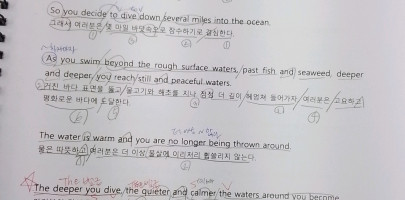 So you decide to dive down several miles into the ocean.
그래서 여러분은 몇 마일 바닷속으로 잠수하기로 결심한다.
As you swim beyond the rough surface waters, past fish and seaweed, deeper
and deeper, you reach still and peaceful waters.
거친 바다 표면을 뚫고 물고기와 해초를 지나 점점 더 깊이 헤엄쳐 들어가자, 여러분은 고요하고
평화로운 바다에 도달한다.
The water is warm and you are no longer being thrown around.
물은 따뜻하고 여러분은 더 이상 물살에 이리저리 휩쓸리지 않는다.
The deeper you dive, the quieter and calmer the waters around you become